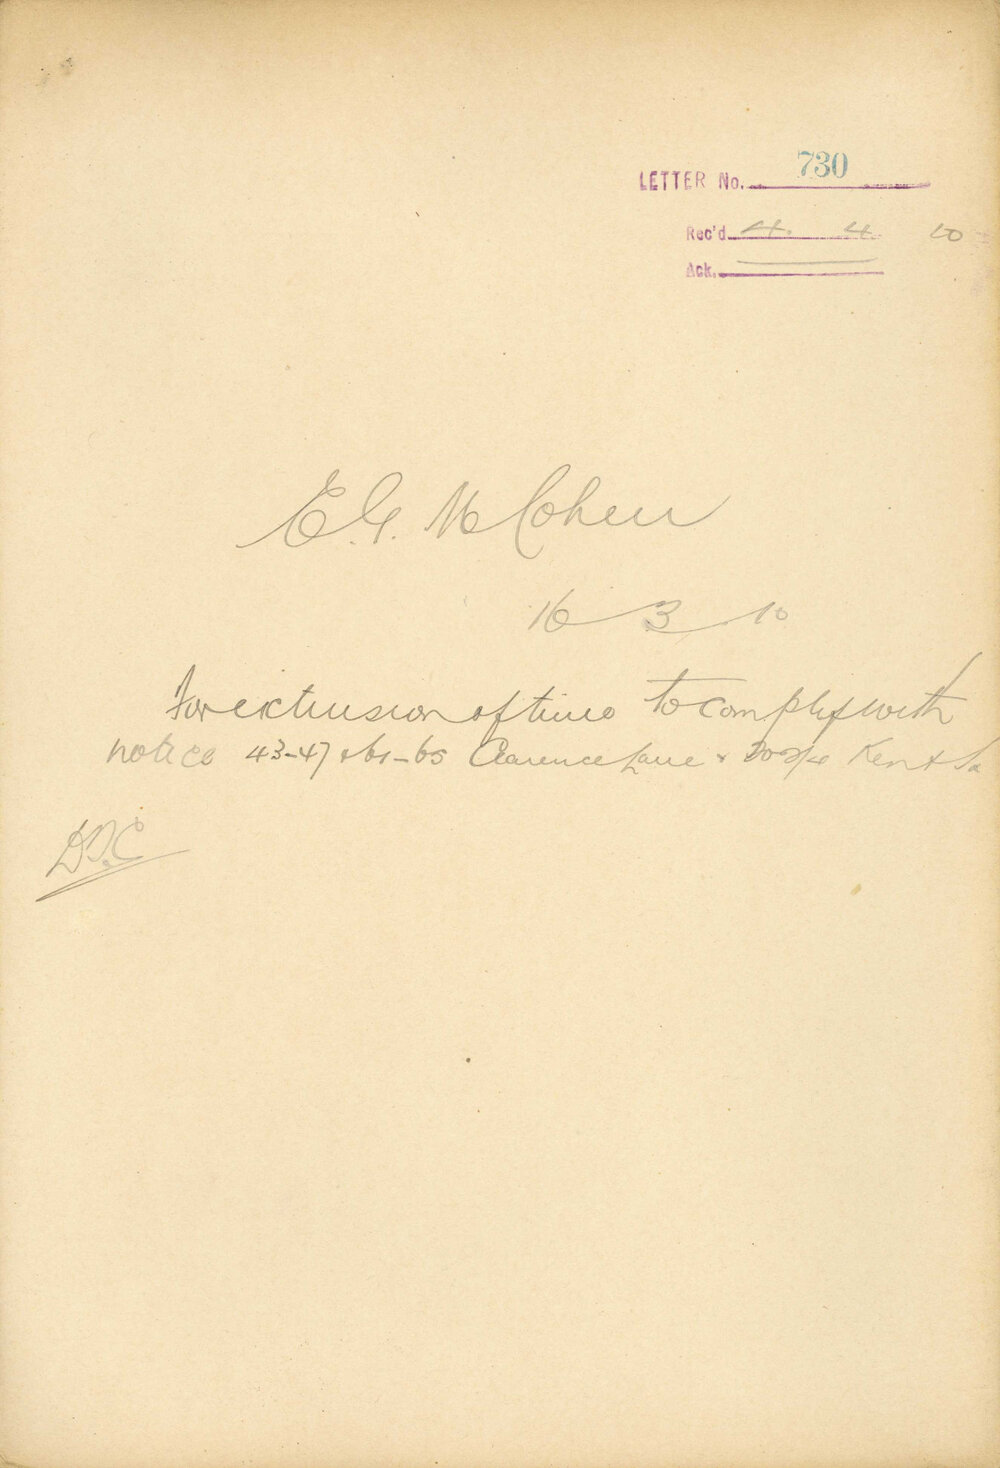 LETTER No. 730
Rec'd 4. 4. 10
Ack.
E. G. M Cohen
16 3 10
For extension of time to comply with
notice 43-47 & 61-65 Clarence Lane & Kent St